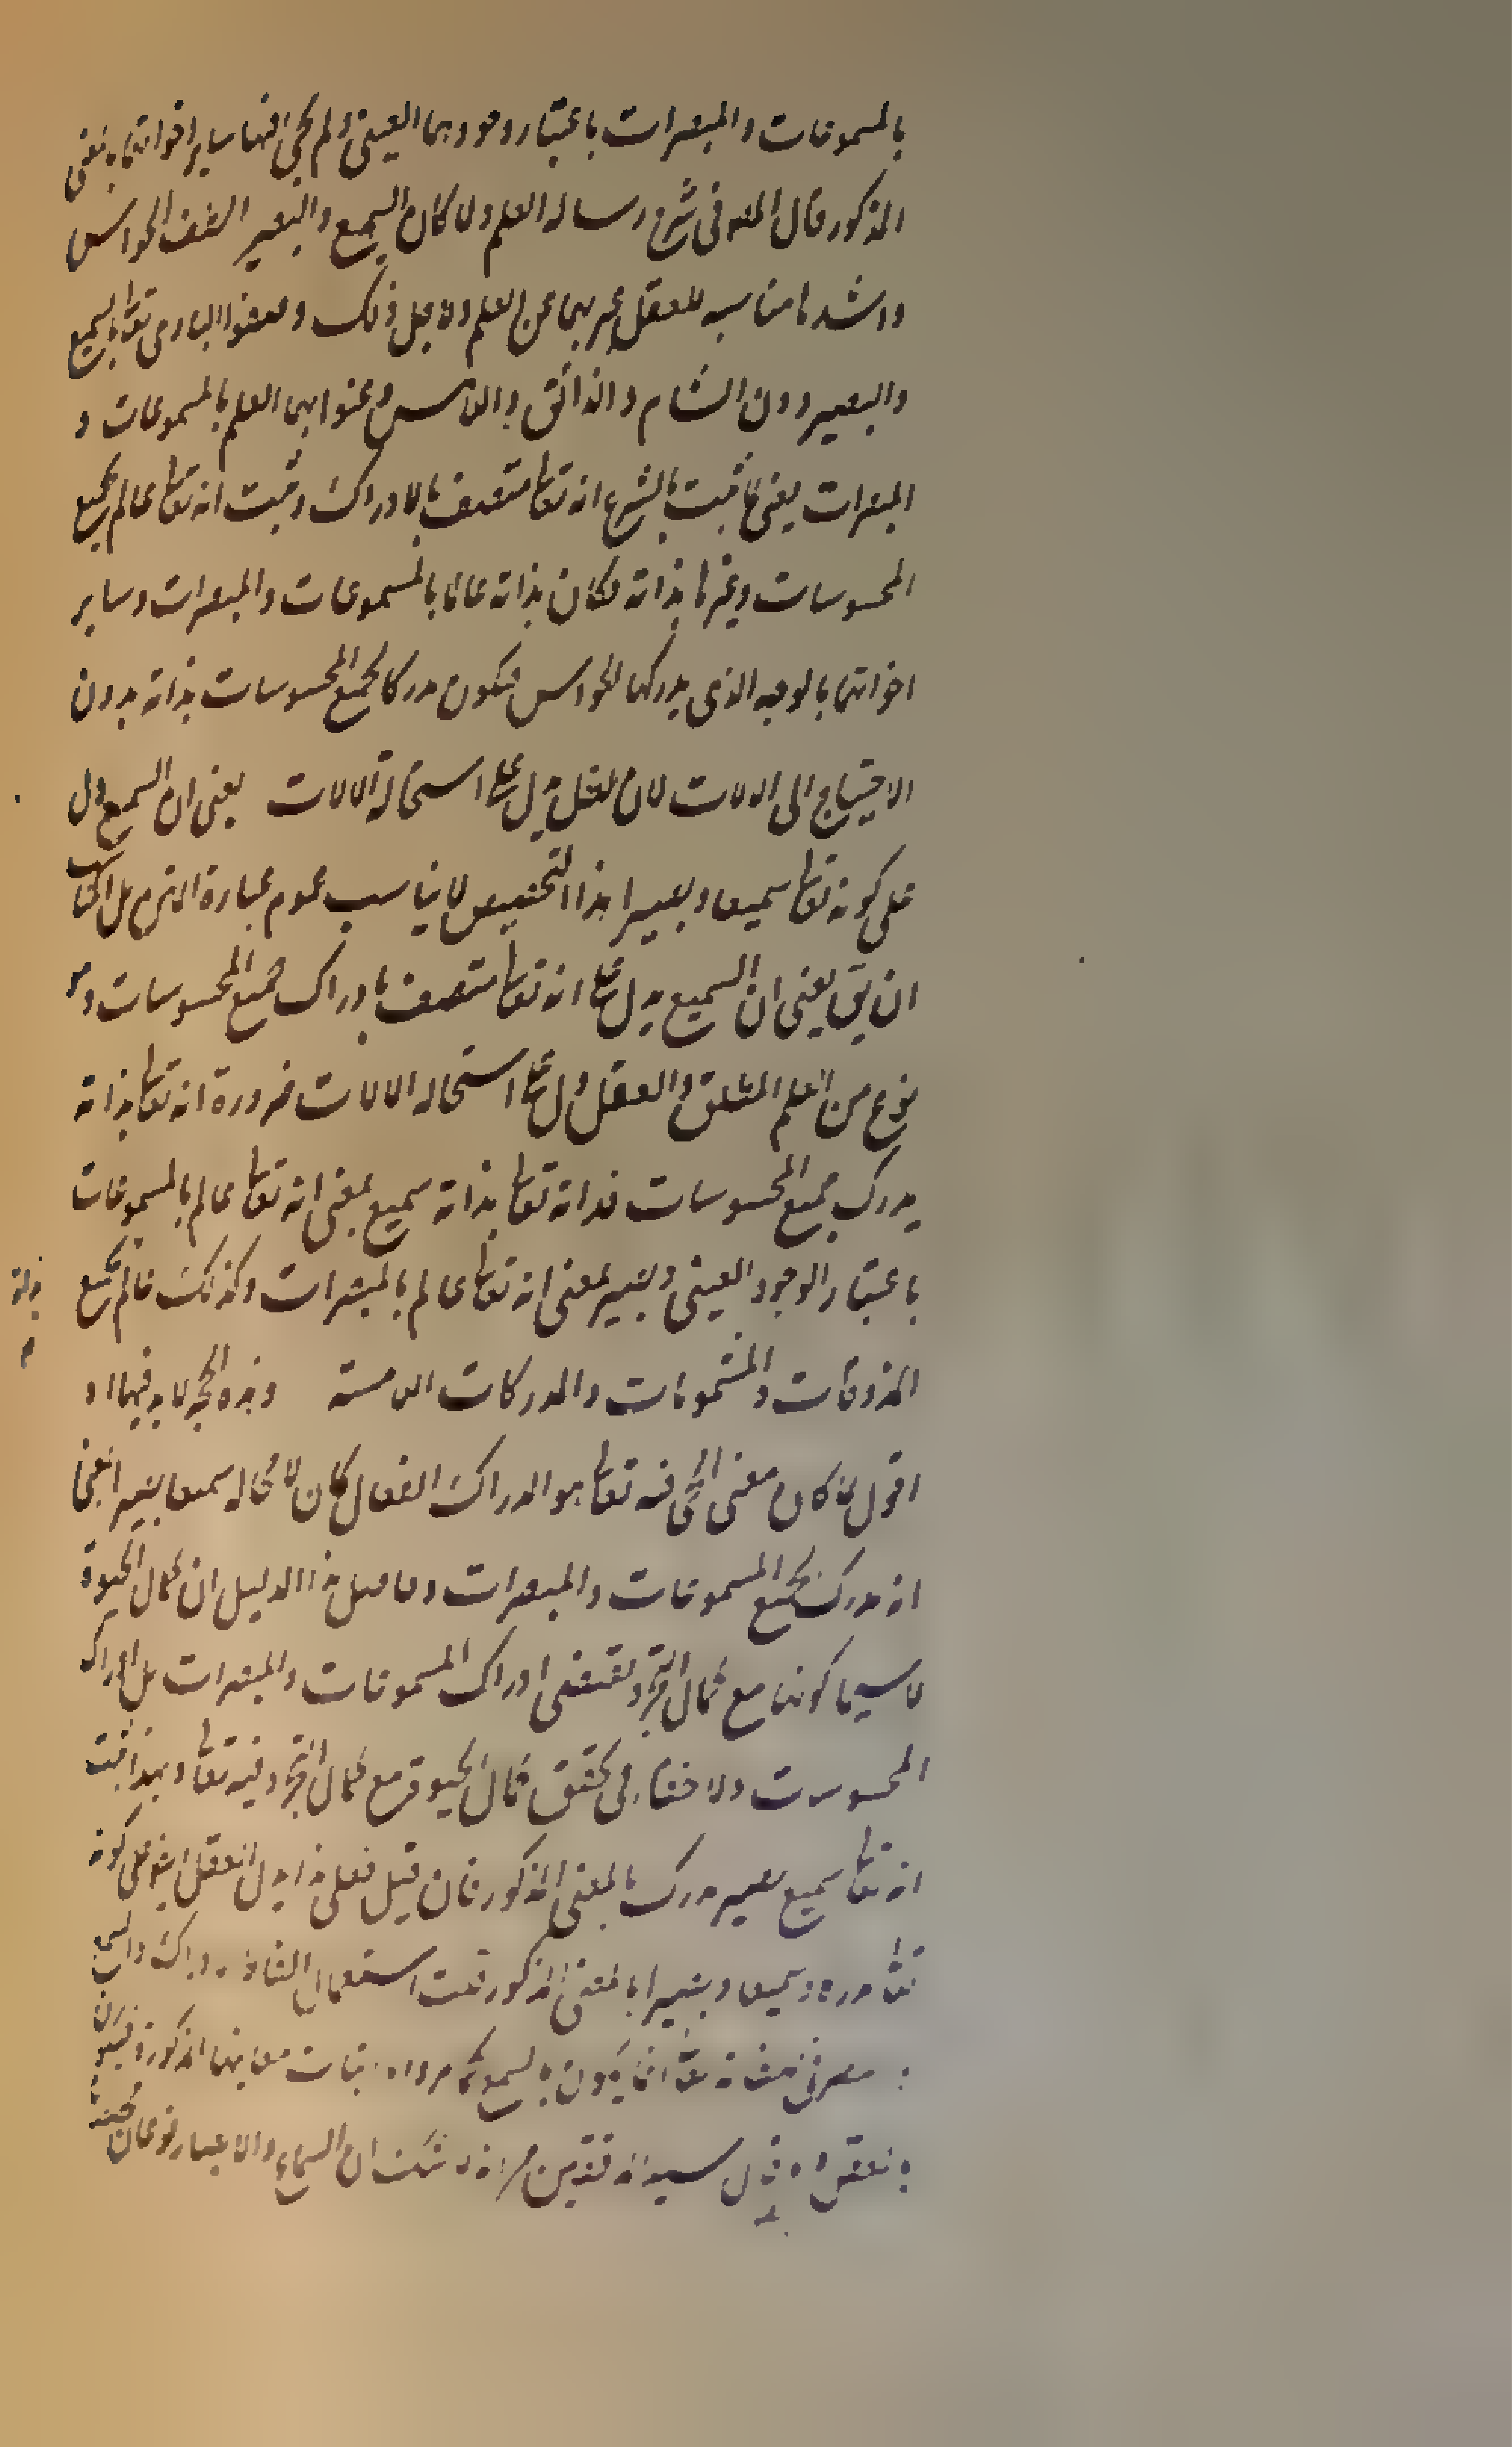 بالمسموعات والمبصرات باعتبار وجودهما العيني ولم يجئ فيها ساير اخواتهما بالمعنى
المذكور قال المص في شرح رسالة العلم ولما كان السمع والبصر الطف الحواس
واشدها مناسبه للعقل عبر بهما عن العلم ولاجل ذلك وصفوا الباري تعالى بالسميع
والبصير دون الشام والذائق واللامس وعنوا بهما العلم بالمسموعات و
المبصرات يعني لما ثبت بالشرع انه تعالى متصف بالادراك وثبت انه تعالى عالم بجميع
المحسوسات وغيرها بذاته فكان بذاته عالما بالمسموعات والمبصرات وساير
اخواتهما بالوجه الذي يدركها الحواس فيكون مدركا لجميع المحسوسات بذاته بدون
الاحتياج الى الالات لان العقل يدل على استحالة الالات يعني ان السمع دل
على كونه تعالى سميعا وبصيرا هذا التخصيص لا يناسب عموم عبارة الشرح بل المناسب
ان يق يعني ان السمع يدل على انه تعالى متصف بادراك جميع المحسوسات وهو
نوع من العلم المطلق والعقل دل على استحاله الالات ضرورة انه تعالى بذاته
يدرك جميع المحسوسات فذاته تعالى بذاته سميع بمعنى انه تعالى عالم بالمسموعات
باعتبار الوجود العيني وبصير بمعنى انه تعالى عالم بالمبصرات وكذلك عالم بجميع
المذوقات والمشمومات والمدركات اللامسة وهذه الحجج لا بد فيها اه
اقول لما كان معنى الحي فيه تعالى هو الدراك الفعال كان لا محاله سميعا بصيرا بمعنى
انه مدرك لجميع المسموعات والمبصرات وحاصل هذا الدليل ان كمال الحيوة
لا سيما كونها مع كمال التجرد يقتضي ادراك المسموعات والمبصرات بل ادراك
المحسوسات ولا خفاء في تحقق كمال الحيوة مع كمال التجرد فيه تعالى وبهذا ثبت
انه تعالى سميع بصير مدرك بالمعنى المذكور فان قيل فعلى هذا يدل العقل ايضا على كونه
تعالى مدركا وسميعا وبصيرا بالمعنى المذكور قلت استعمال الفاظ الادراك والسمع